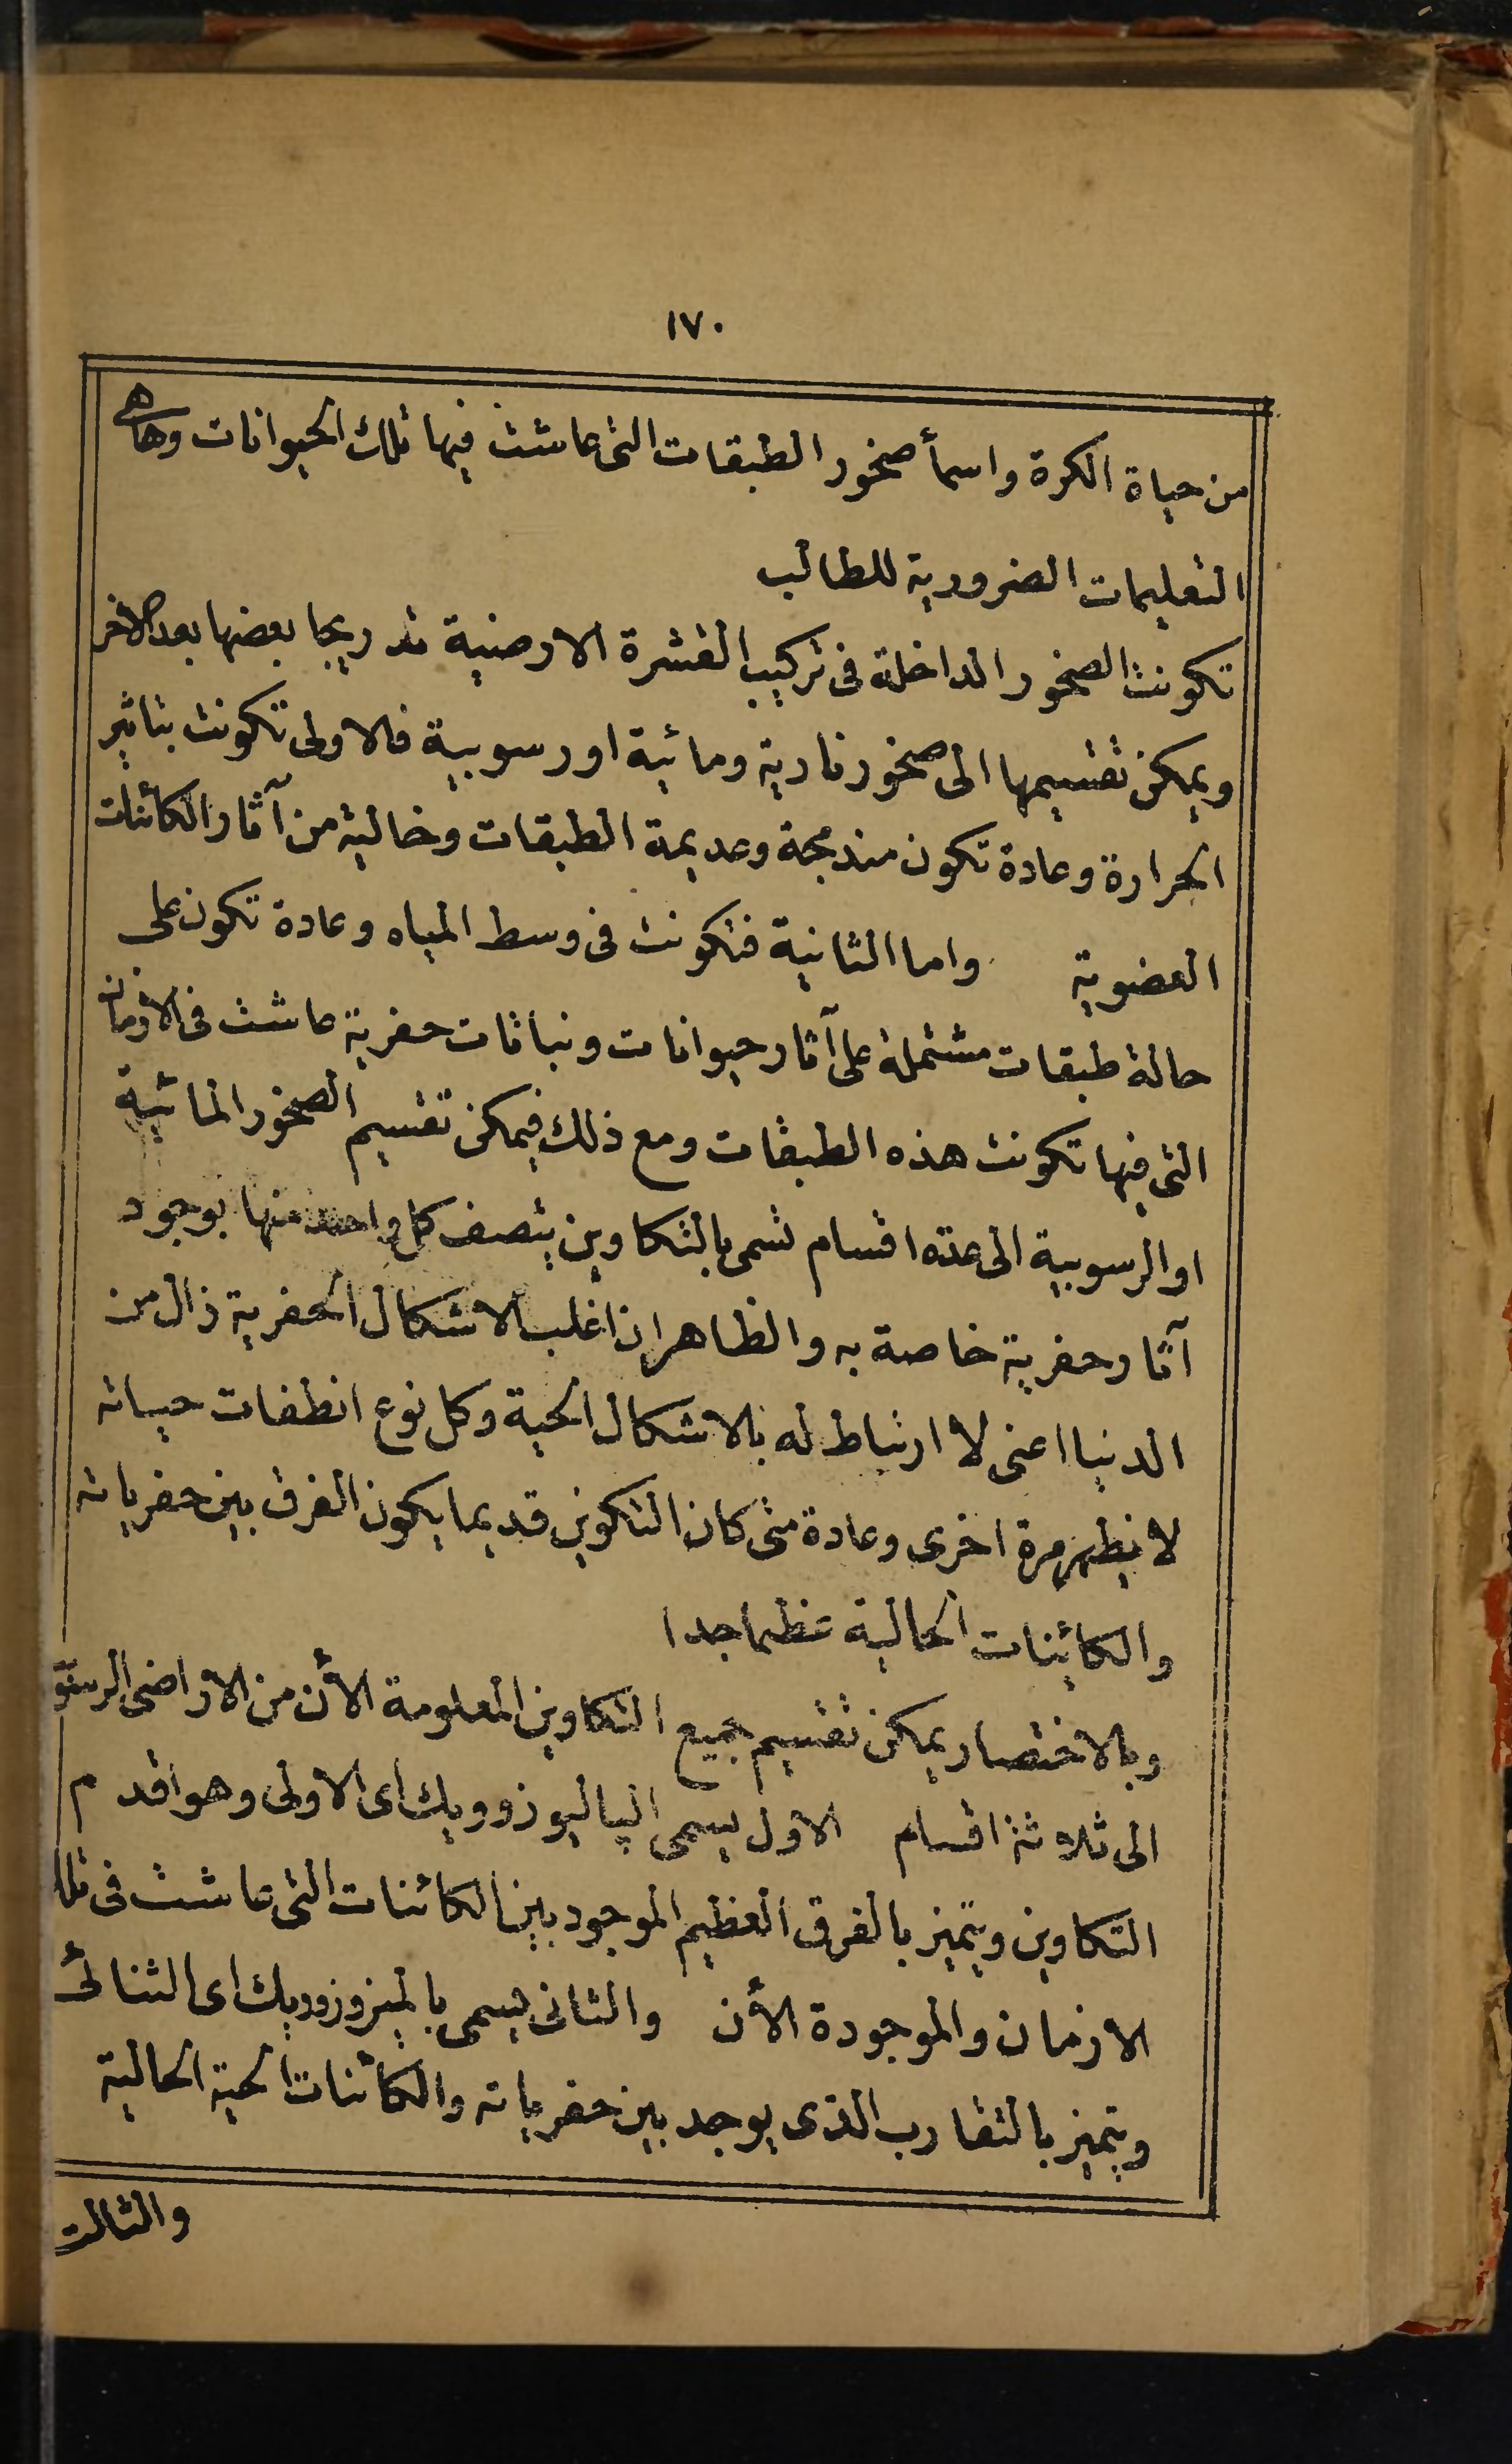 ١٧٠
من حياة الكرة واسمأ صخور الطبقات التى عاشت فيها تلك الحيوانات وها هى
التعليمات الضرورية للطالب
تكونت الصخور الداخلة فى تركيب القشرة الارضية تدريجا بعضها بعد الآخر
ويمكن تقسيمها الى صخور نارية ومائية او رسوبية فالاولى تكونت بتاثير
الحرارة وعادة تكون مندمجة وعديمة الطبقات وخالية من آثار الكائنات
العضوية واما الثانية فتكونت فى وسط المياه وعادة تكون على
حالة طبقات مشتملة على آثار حيوانات ونباتات حفرية عاشت فى الازمان
التى فيها تكونت هذه الطبقات ومع ذلك فيمكن تقسيم الصخور المائية
او الرسوبية الى عدة اقسام تسمى بالتكاوين يتصف كل واحد منها بوجود
آثار حفرية خاصة به والظاهر ان اغلب الاشكال الحفرية زال من
الدنيا اعنى لا ارتباط له بالاشكال الحية وكل نوع انطفات حياته
لا يظهر مرة اخرى وعادة متى كان التكوين قديما يكون الفرق بين حفرياته
والكائنات الحالية عظيما جدا
وبالاختصار يمكن تقسيم جميع التكاوين المعلومة الأن من الاراضى الرسو
الى ثلاثة اقسام الاول يسمى الپاليوزوويك اى الاولى وهو اقدم
التكاوين ويتميز بالفرق العظيم الموجود بين الكائنات التى عاشت فى تلك
الازمان والموجودة الأن والثانى يسمى بالميزوزوويك اى الثنائى
ويتميز بالتقارب الذى يوجد بين حفرياته والكائنات الحية الحالية
والثالث